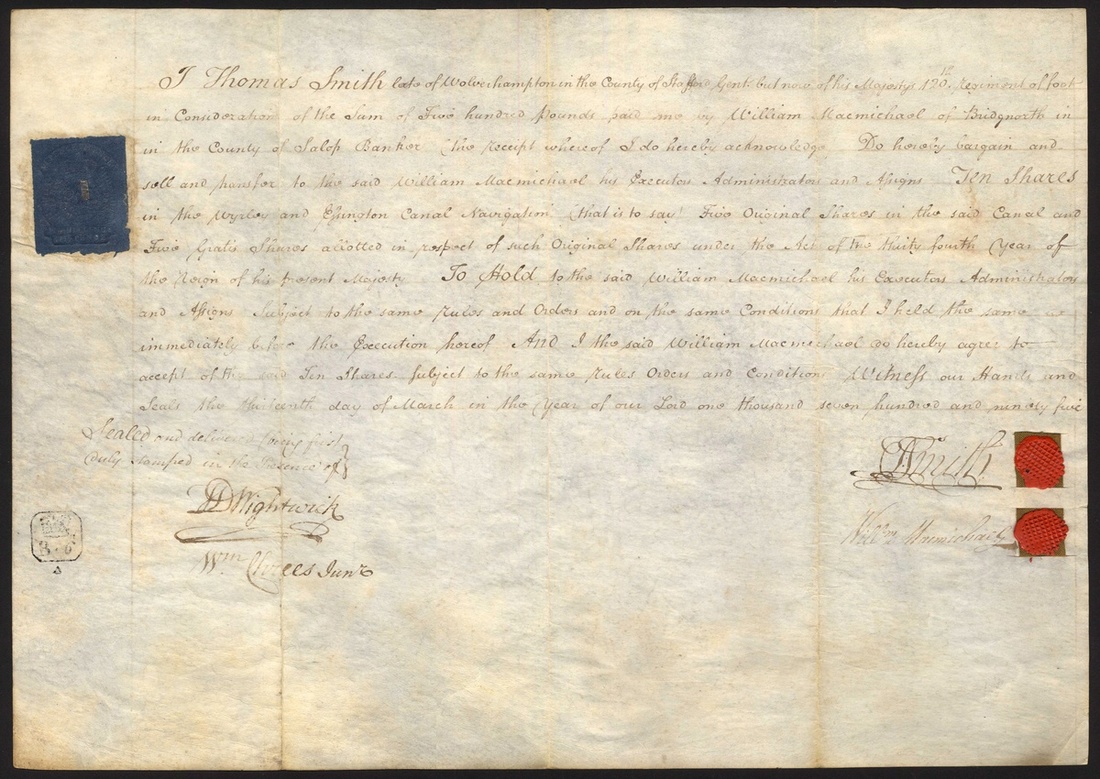 I Thomas Smith late of Wolverhampton in the County of Stafford Gent. but now of his Majestys 120th Regiment of foot
in Consideration of the Sum of Five hundred Pounds paid me by William Macmichael of Bridgnorth in
in the County of Salop Banker (the receipt whereof I do hereby acknowledge Do hereby bargain and
sell and transfer to the said William Macmichael his Executors Administrators and Assigns Ten Shares
in the Wyrley and Essington Canal Navigation (that is to say) Five Original Shares in the said Canal and
Five Gratis Shares allotted in respect of such Original Shares under the Act of the thirty fourth Year of
the Reign of his present Majesty To Hold to the said William Macmichael his Executors Administrators
and Assigns Subject to the same Rules and Orders and on the same Conditions that I held the same
immediately before the Execution hereof And I the said William Macmichael do hereby agree to
accept of the said Ten Shares subject to the same Rules Orders and Conditions Witness our Hands and
Seals the thirteenth day of March in the Year of our Lord one thousand seven hundred and ninety five
Sealed and delivered being first
duly stamped in the Presence of
Wightwick
Wm Junr
TSmith
Willm Macmichael